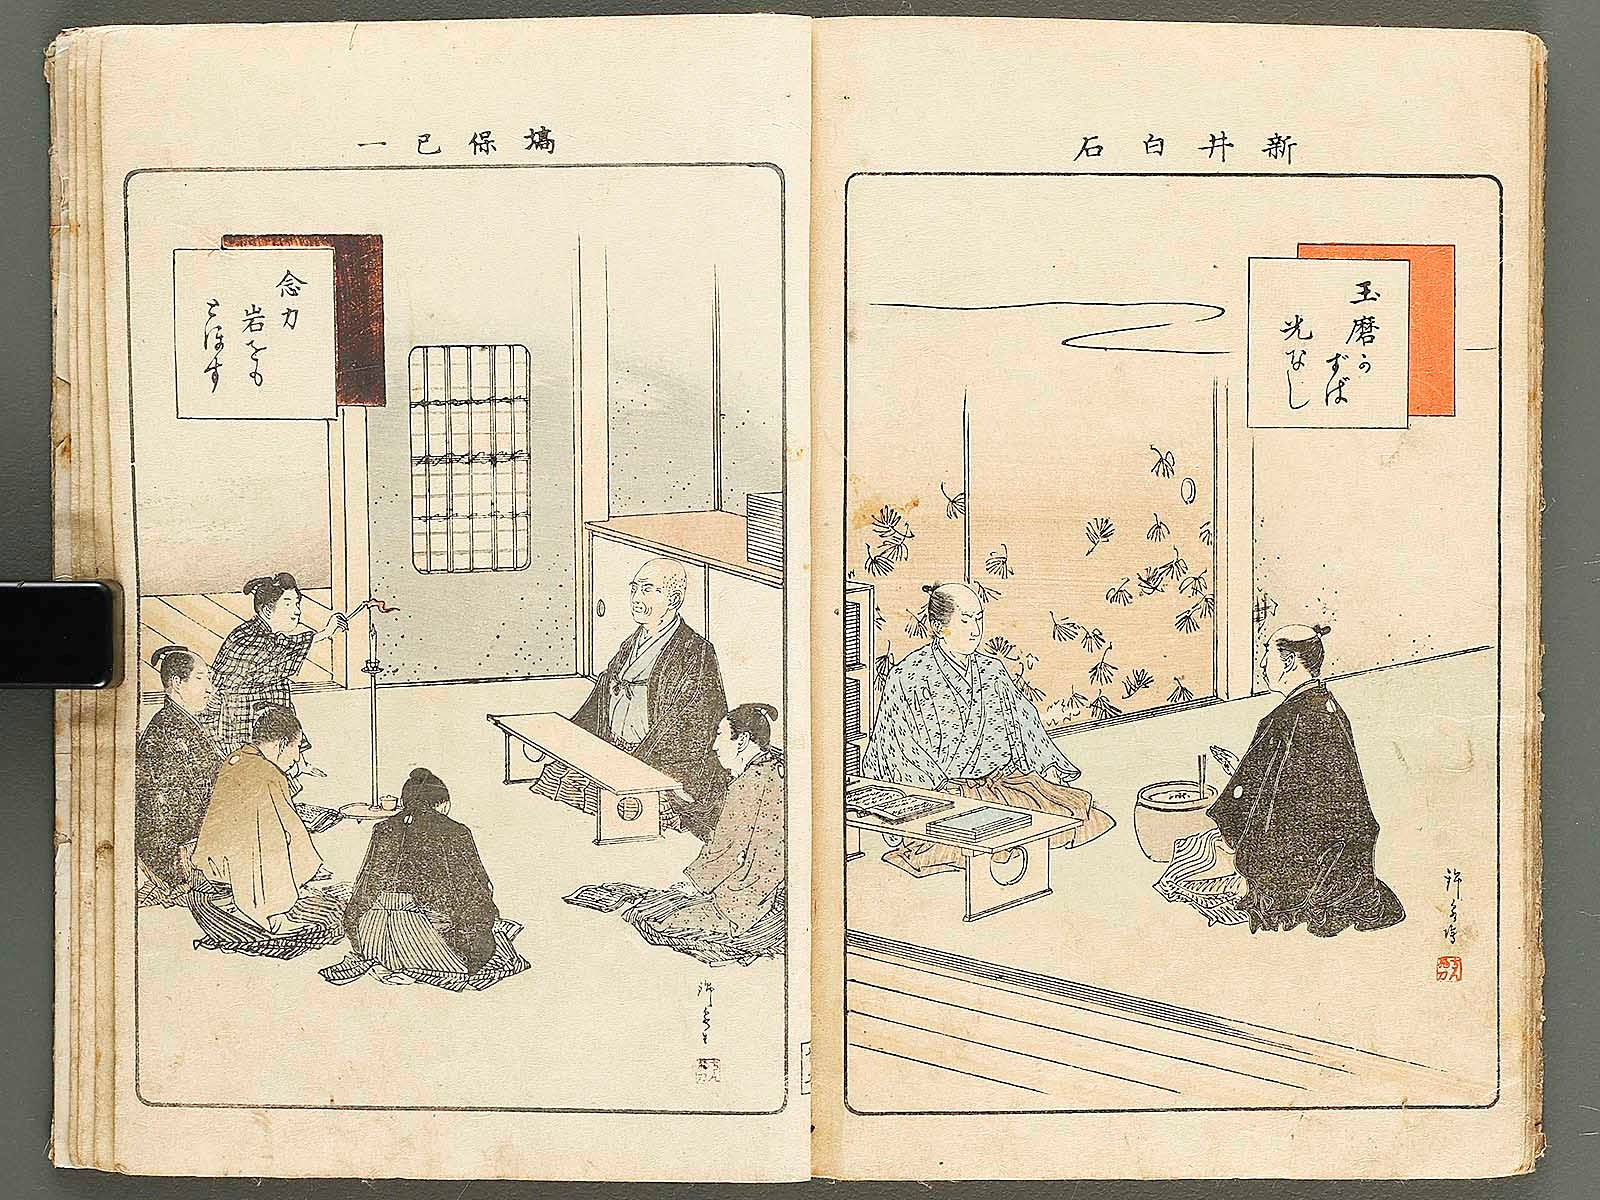 新井白石
玉磨か
ずば
光なし
塙保己一
念力
岩をも
とほす